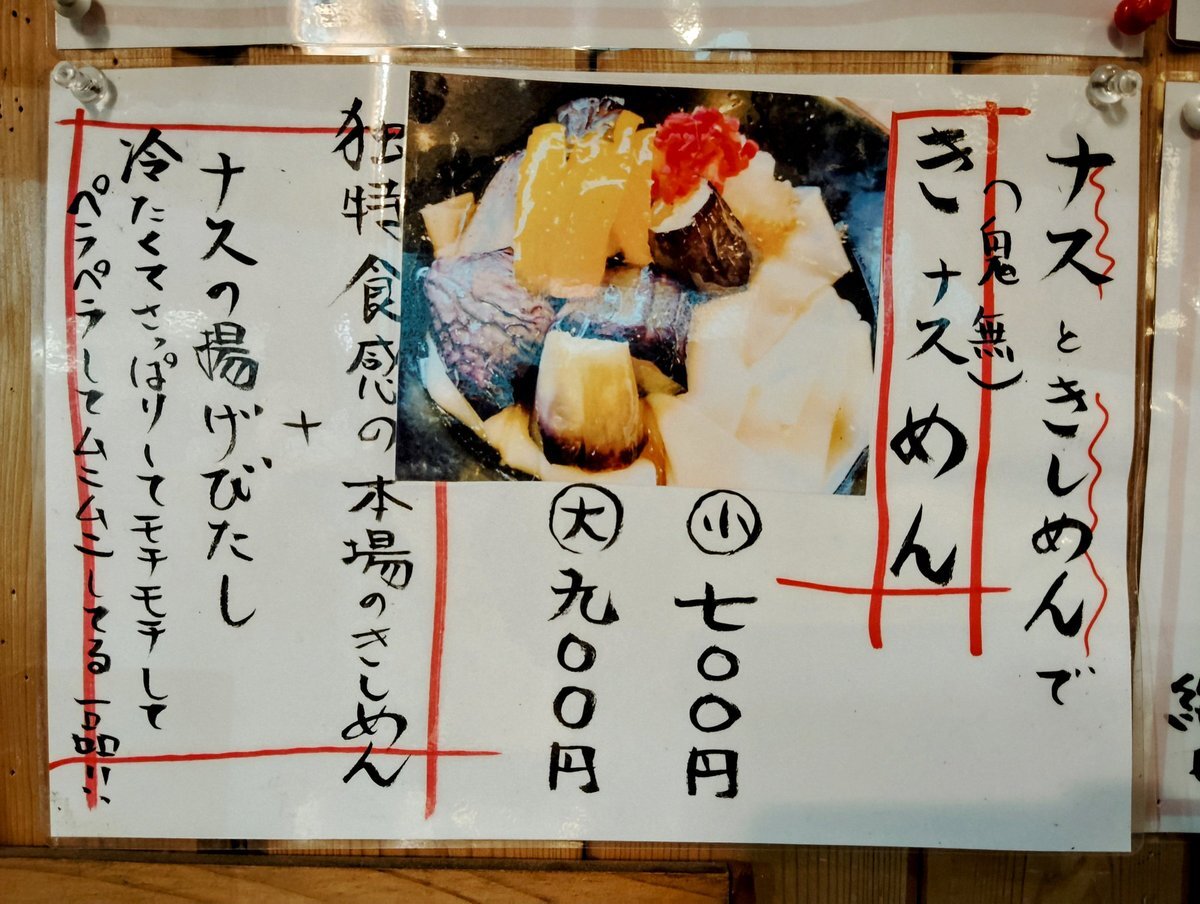 ナスときしめんで
(鬼無)
きナスめん
小 七〇〇円
大 九〇〇円
独特食感の本場のきしめん
+
ナスの揚げびたし
冷たくてさっぱりしてモチモチして
ペラペラしてムニムニしてる一品!!